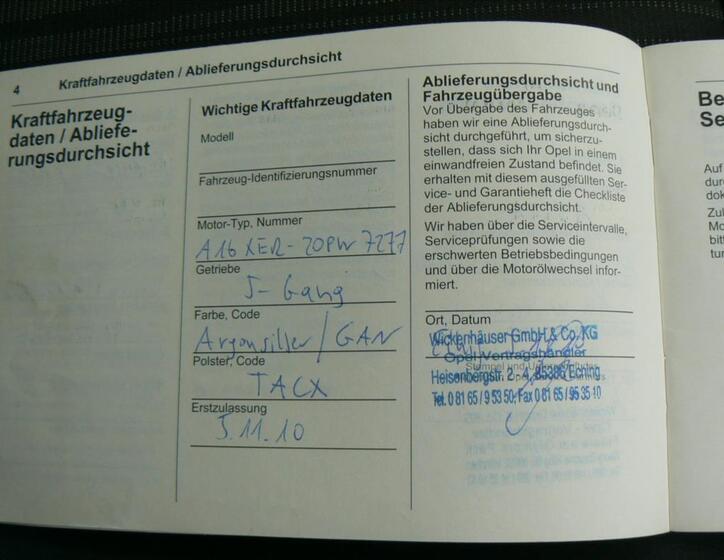 4 Kraftfahrzeugdaten / Ablieferungsdurchsicht
Kraftfahrzeug-
daten / Abliefe-
rungsdurchsicht
Wichtige Kraftfahrzeugdaten
Modell
Fahrzeug-Identifizierungsnummer
Motor-Typ, Nummer
A16 XER - 20PW 7277
Getriebe
5-Gang
Farbe, Code
Argonsilber / GAN
Polster, Code
TACX
Erstzulassung
5.11.10
Ablieferungsdurchsicht und
Fahrzeugübergabe
Vor Übergabe des Fahrzeuges
haben wir eine Ablieferungsdurch-
sicht durchgeführt, um sicherzu-
stellen, dass sich Ihr Opel in einem
einwandfreien Zustand befindet. Sie
erhalten mit diesem ausgefüllten Ser-
vice- und Garantieheft die Checkliste
der Ablieferungsdurchsicht.
Wir haben über die Serviceintervalle,
Serviceprüfungen sowie die
erschwerten Betriebsbedingungen
und über die Motorölwechsel infor-
miert.
Ort, Datum
Wickenhäuser GmbH & Co. KG
Opel Vertragshändler
Stempel und
Heisenbergstr. 2 - 4, 85386 Eching
Tel. 0 81 65 / 9 53 50, Fax 0 81 65 / 95 35 10
Be
Se
Auf
dur
dok
Zu
Mo
bitt
tun